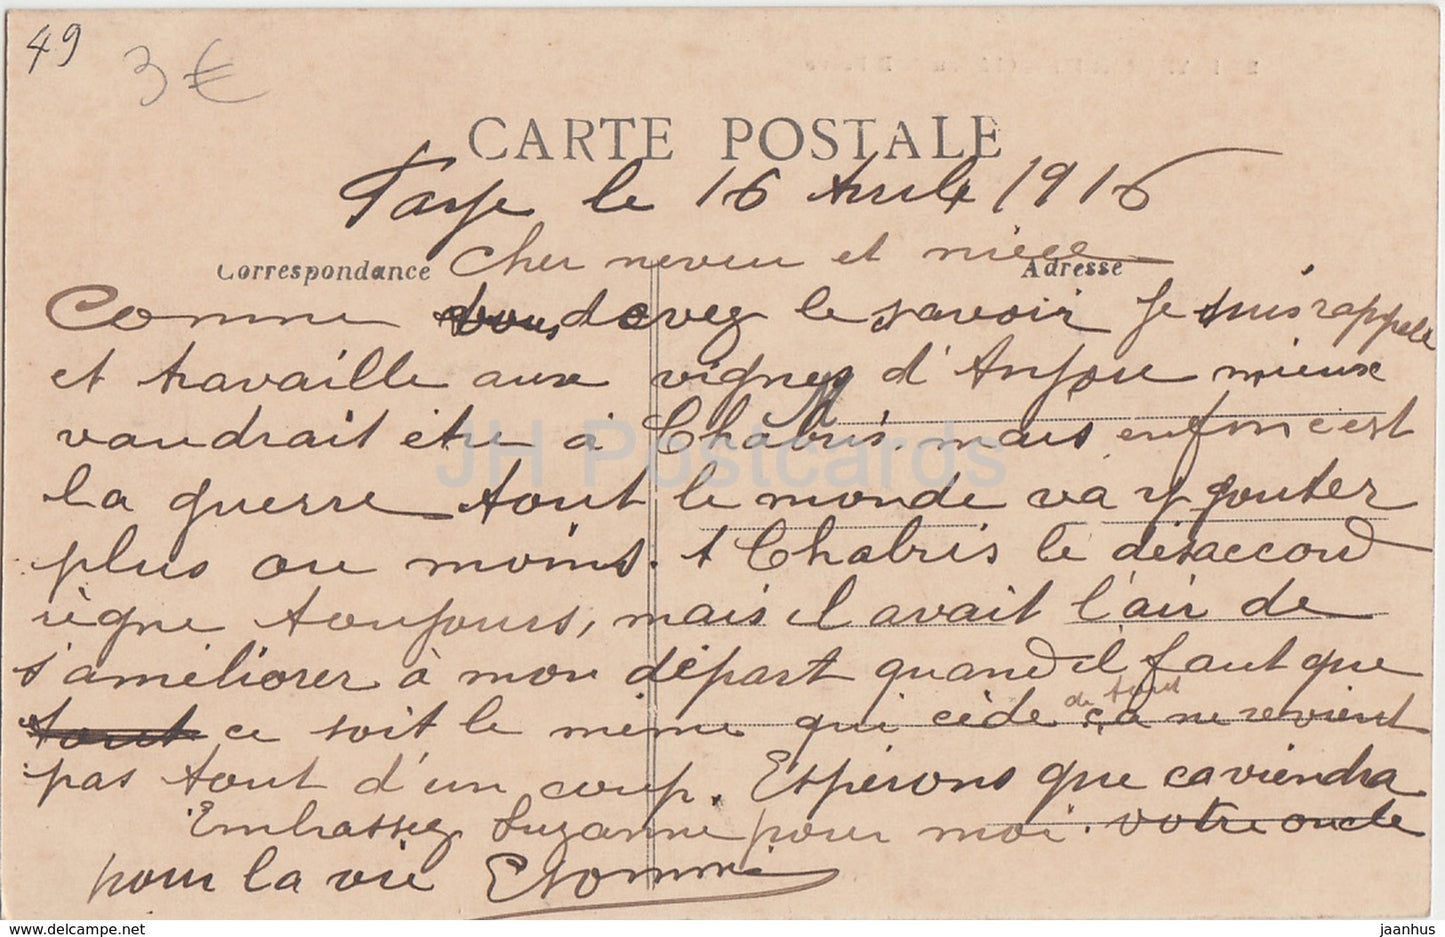 49
3€
CARTE POSTALE
Faye le 16 Avril 1916
Correspondance
Cher neveu et nièce
Adresse
Comme vous devez le savoir Je suis rappelé
et travaille aux vignes d'Anjou mieux
vaudrait être à Chabris. mais enfin c'est
la guerre tout le monde va y gouter
plus ou moins. A Chabris le désaccord
règne toujours, mais il avait l'air de
s'améliorer à mon départ quand il faut que
tout ce soit le même qui cède de tout ça ne revient
pas tout d'un coup. Espérons que ca viendra
Embrassez Suzanne pour moi. votre oncle
pour la vie
JH Postcards
www.delcampe.net
jaanhus